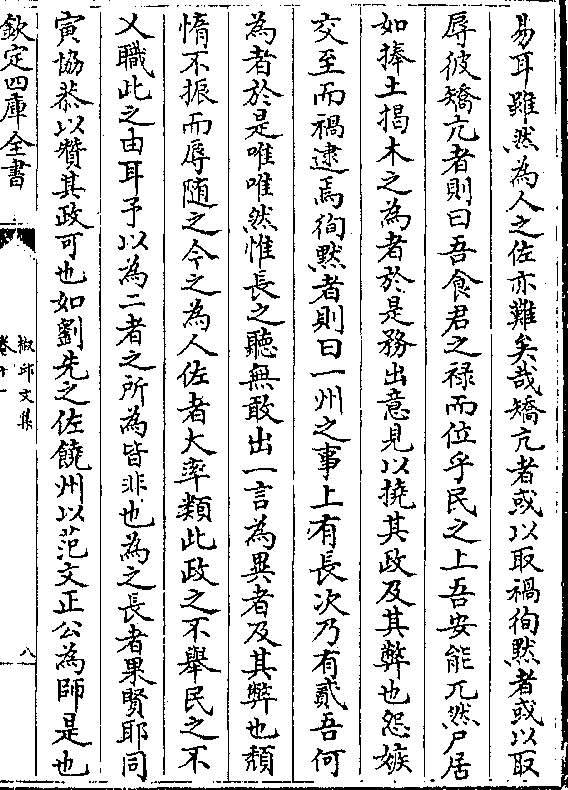 易耳雖然為人之佐亦難矣哉矯亢者或以取禍徇黙者或以取
辱彼矯亢者則曰吾食君之禄而位乎民之上吾安能兀然尸居
如捧土揭木之為者於是務出意見以撓其政及其弊也怨嫉
交至而禍逮焉徇黙者則曰一州之事上有長次乃有貳吾何
為者於是唯唯然惟長之聽無敢出一言為異者及其弊也頽
惰不振而辱随之今之為人佐者大率類此政之不舉民之不
乂職此之由耳予以為二者之所為皆非也為之長者果賢耶同
寅協恭以贊其政可也如劉先之佐饒州以范文正公為師是也
欽定四庫全書
椒邱文集
卷十一
八